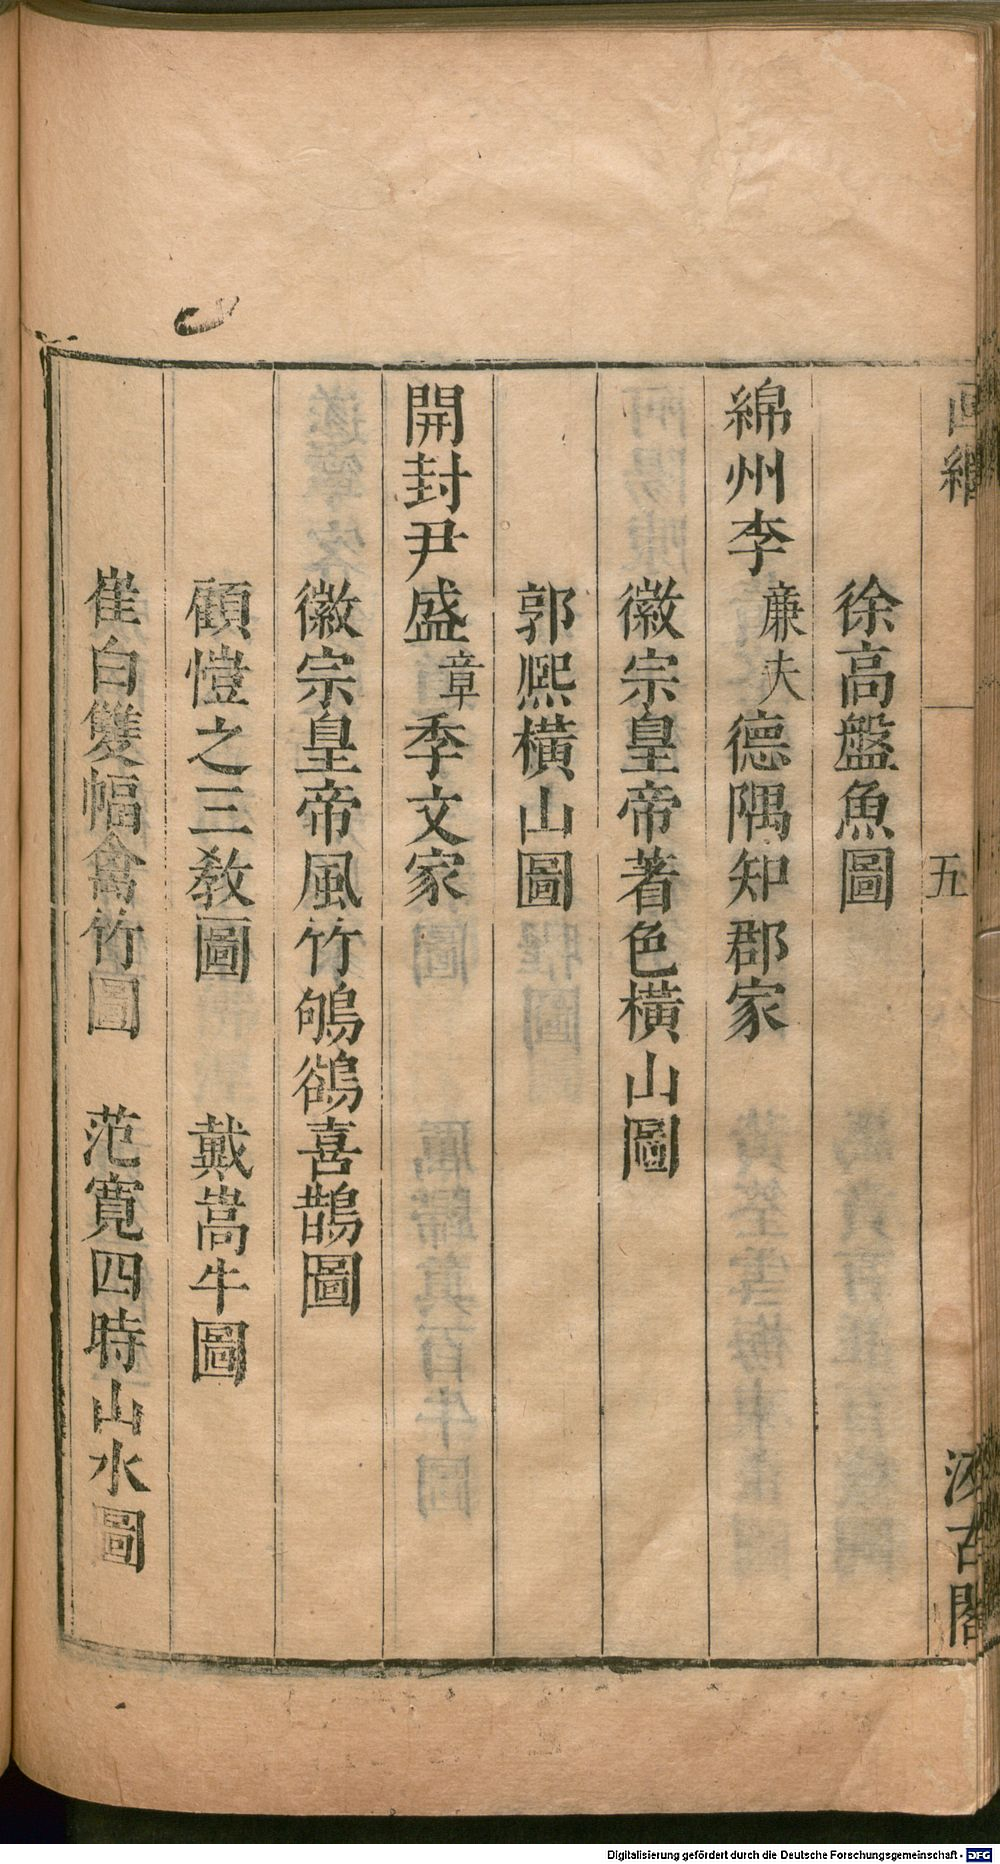 画繼 五 汲古閣
徐高盤魚圖
綿州李廉夫德隅知郡家
徽宗皇帝著色橫山圖
郭熙橫山圖
開封尹盛章季文家
徽宗皇帝風竹鴝鵒喜鵲圖
顧愷之三教圖 戴嵩牛圖
崔白雙幅禽竹圖 范寛四時山水圖
Digitalisierung gefördert durch die Deutsche Forschungsgemeinschaft - DFG